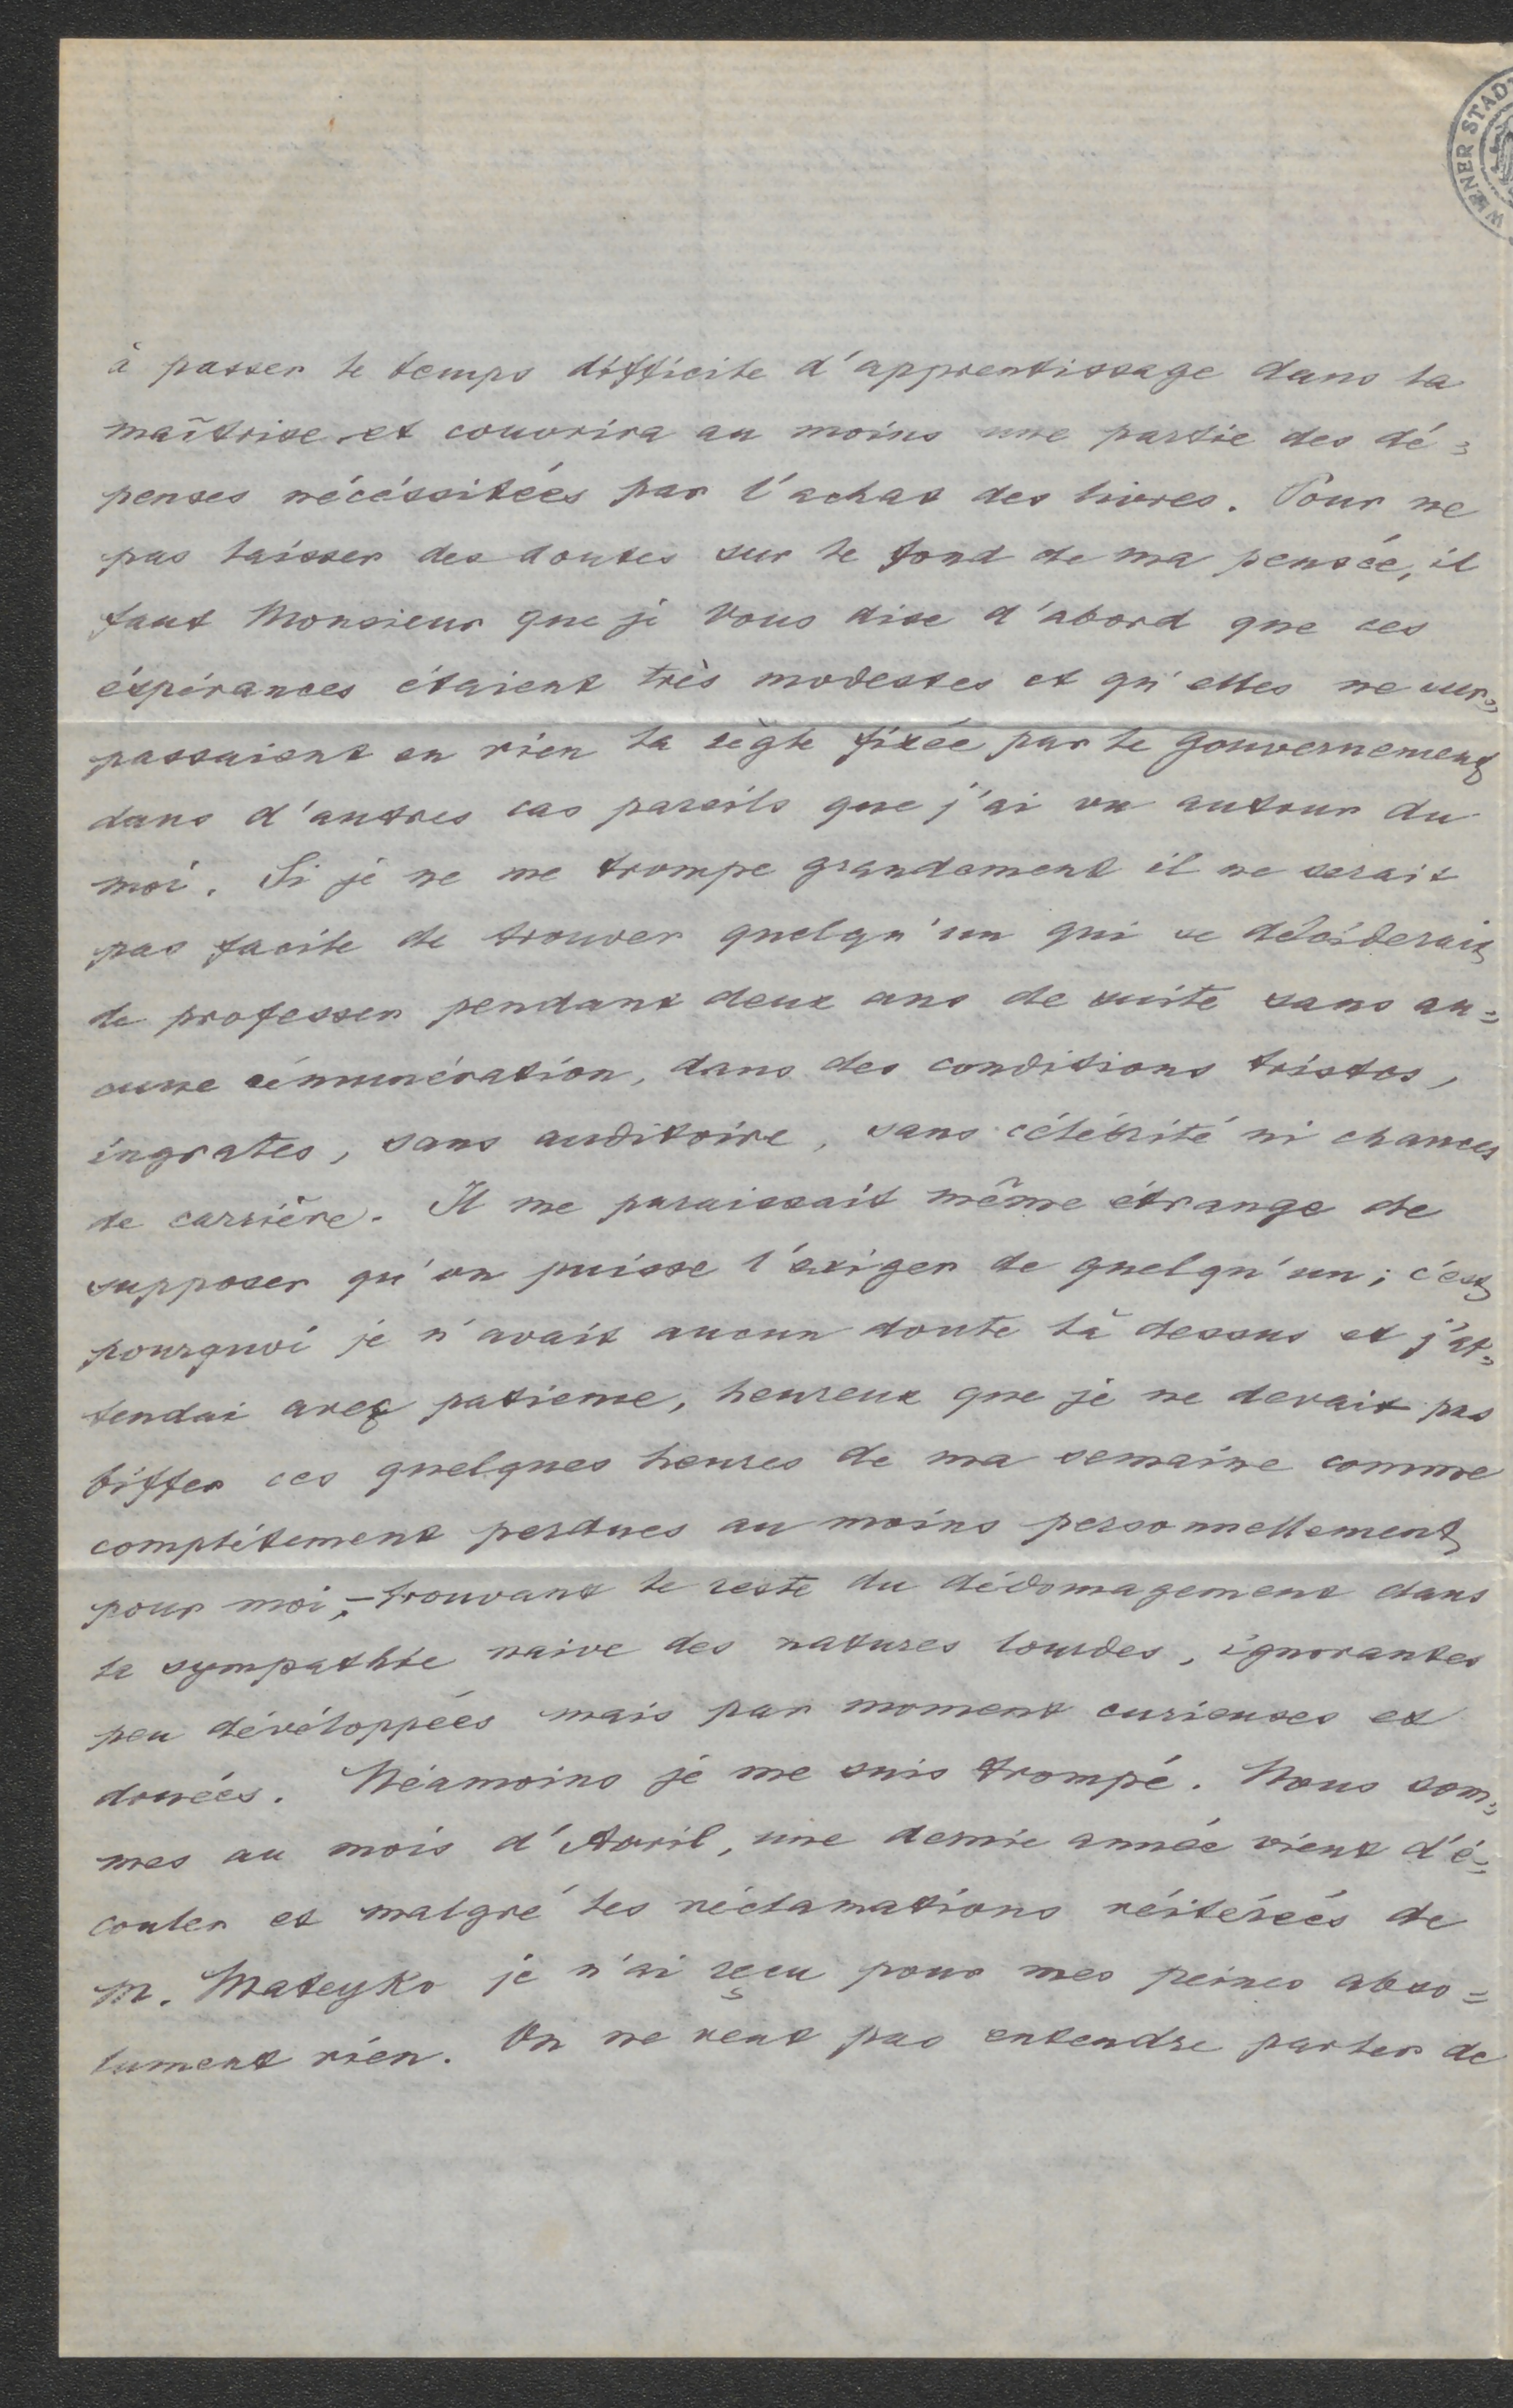 WIENER STAD
à passer le temps difficile d'apprentissage dans la
maîtrise et couvrira au moins une partie des dé=
penses nécéssitées par l'achat des livres. Pour ne
pas laisser des doutes sur le fond de ma pensée, il
faut Monsieur que je Vous dise d'abord que ces
éspérances étaient très modestes et qu'elles ne sur=
passaient en rien la règle fixée par le gouvernement
dans d'autres cas pareils que j'ai vu autour du
moi. Si je ne me trompe grandement il ne serait
pas facile de trouver quelqu'un qui se déciderait
de professer pendant deux ans de suite sans au=
cune rémunération, dans des conditions tristes,
ingrates, sans auditoire, sans célébrité ni chances
de carrière. Il me paraissait même étrange de
supposer qu'on puisse l'exiger de quelqu'un; c'est
pourquoi je n'avait aucun doute là dessus et j'at=
tendai avec patience, heureux que je ne devait pas
biffer ces quelques heures de ma semaine comme
complètement perdues au moins personnellement
pour moi, – trouvant le reste du dédomagement dans
la sympathie naive des natures lourdes, ignorantes
peu dévéloppées mais par moment curieuses et
douées. Néamoins je me suis trompé. Nous som=
mes au mois d'Avril, une demie année vient d'é=
couler et malgré les réclamations réitérées de
M. Mateyko je n'ai reçu pour mes peines abso=
lument rien. On ne veut pas entendre parler de